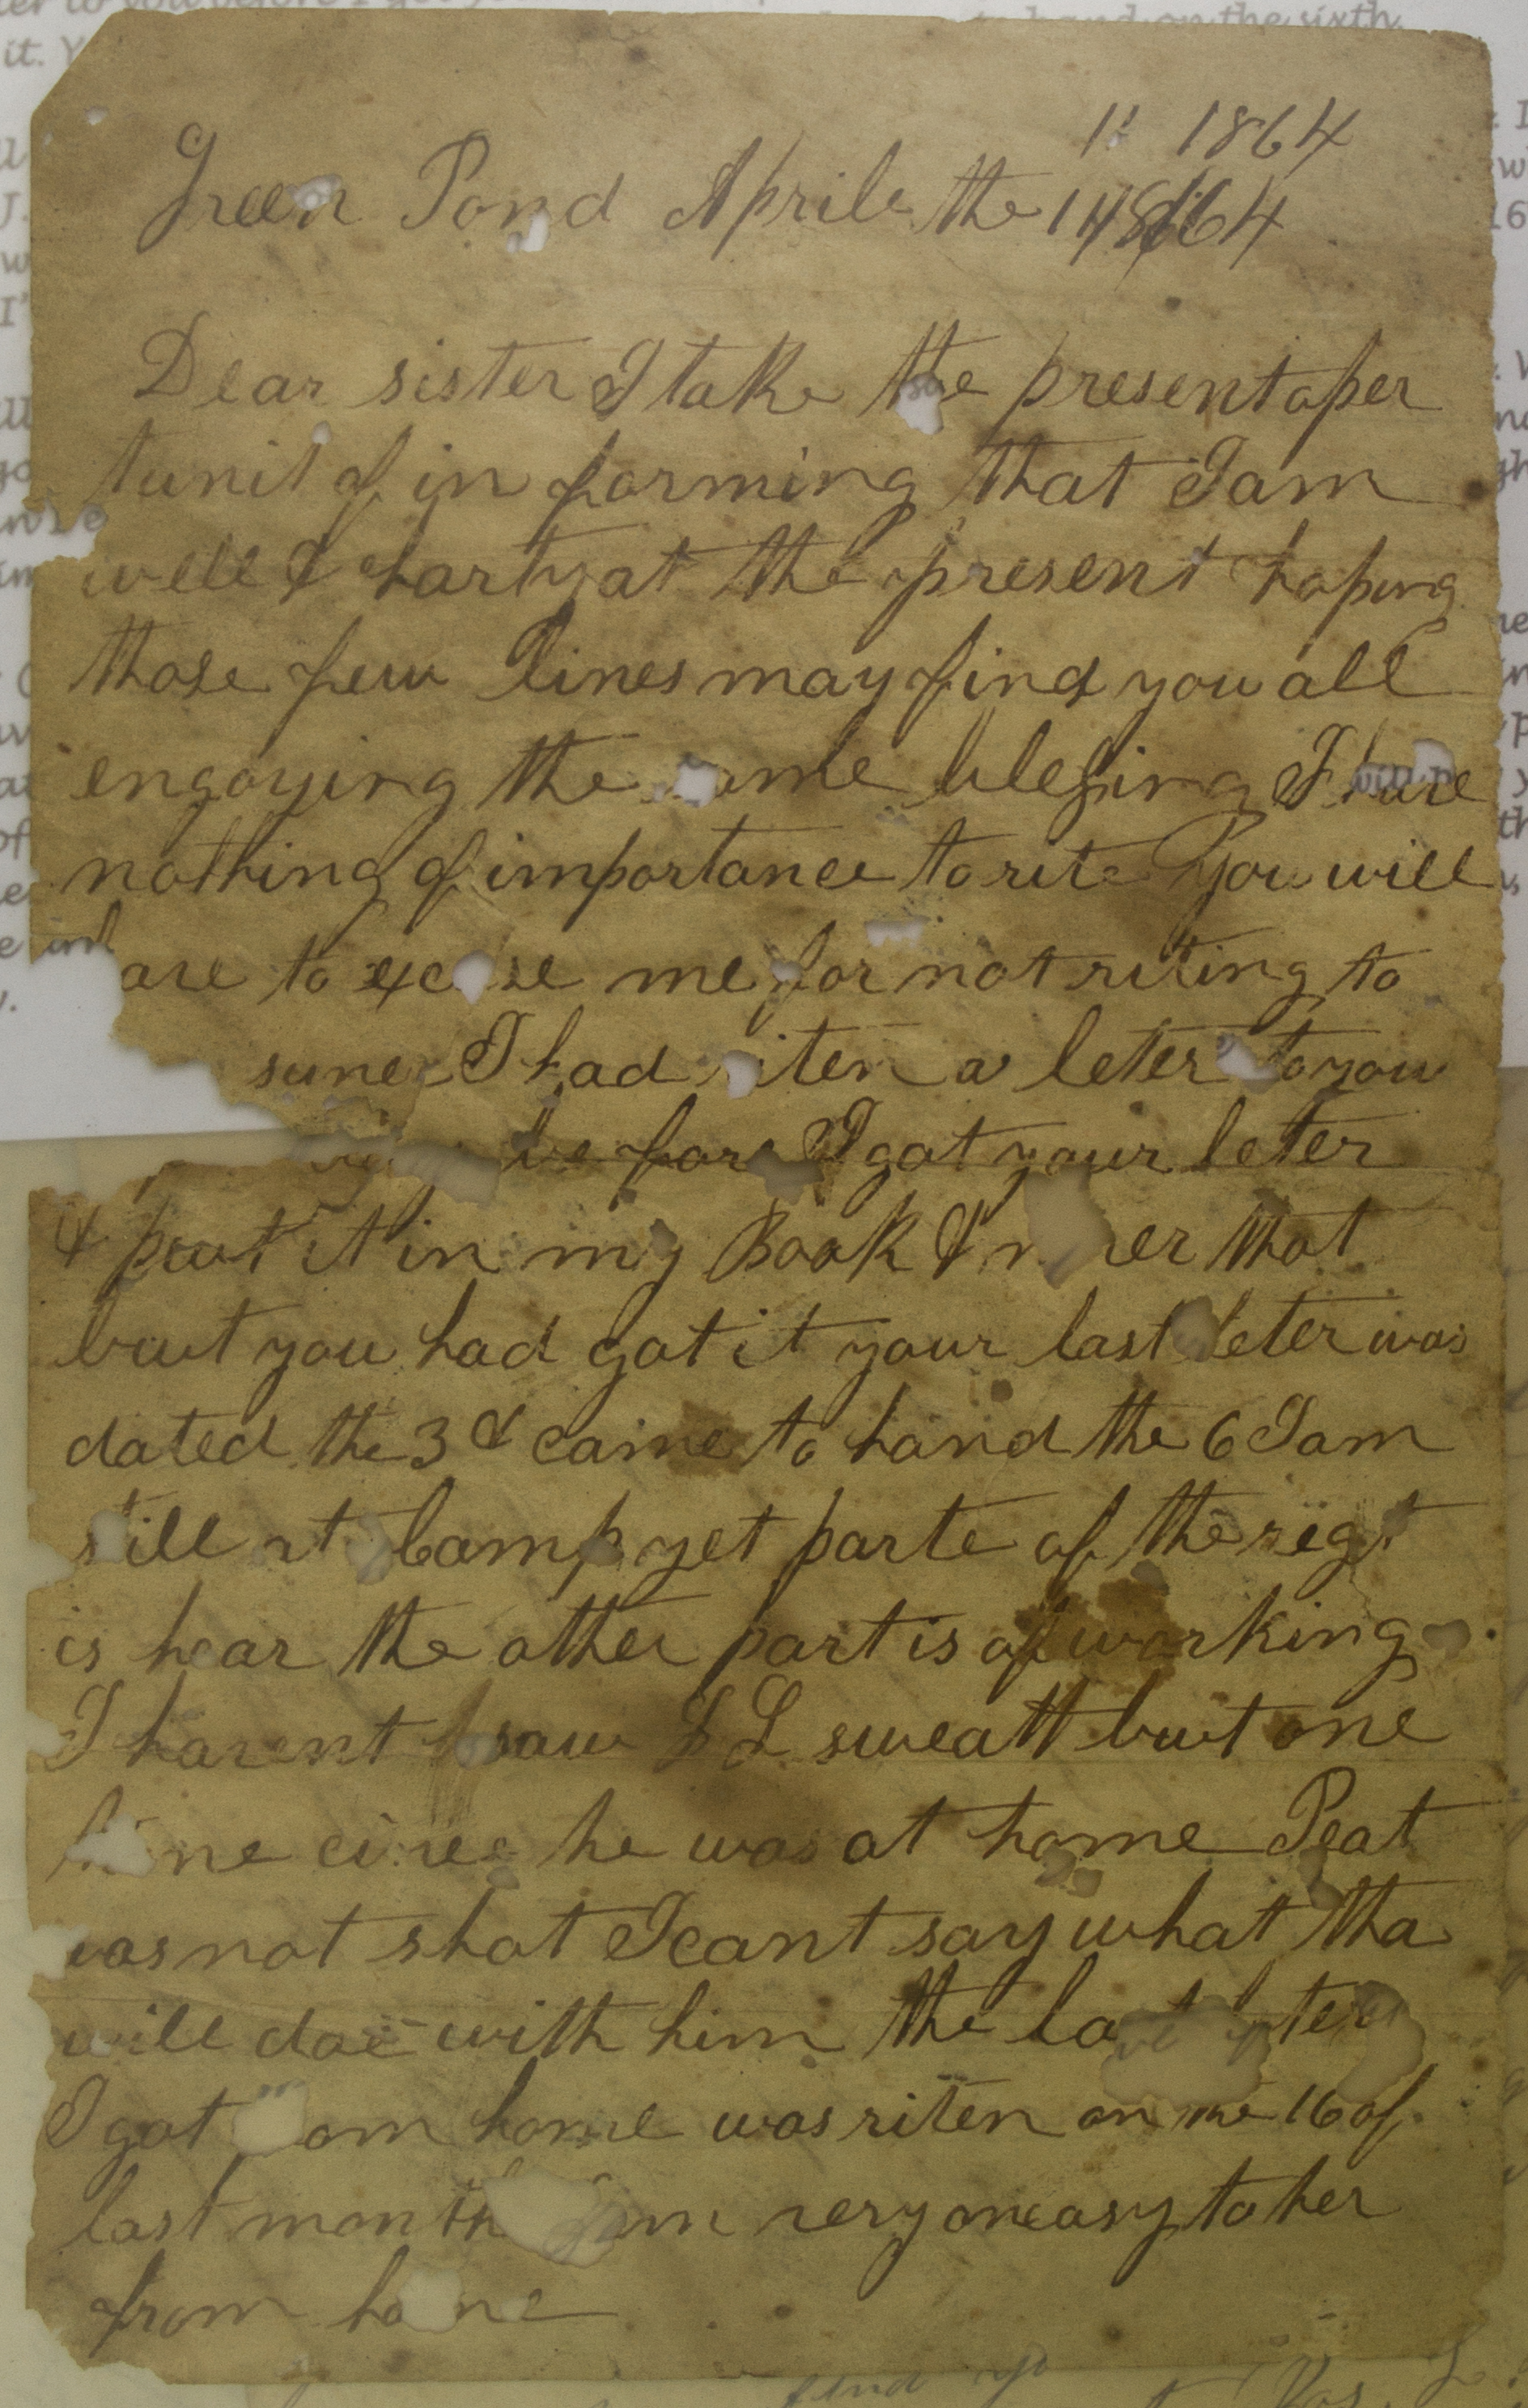 11 1864
Green Pond Aprile the 14 1864
Dear sister I take the present oper
tunit of in forming that I am
well & harty at the present hoping
those few lines may find you all
engoying the same blessing I have
nothing of importance to rite You will
are to excuse me for not riting to
sune I had riten a leter to you
be fore I got your leter
& put it in my Book & never that
but you had got it your last leter was
dated the 3 & came to hand the 6 I am
still at Camp yet parte of the regt
is hear the other part is of working
I havent saw L sweatt but one
time cince he was at home Peat
was not shot I cant say what tha
will doe with him the last leter
I got from home was riten on the 16 of
last month I am very oneasy to her
from home